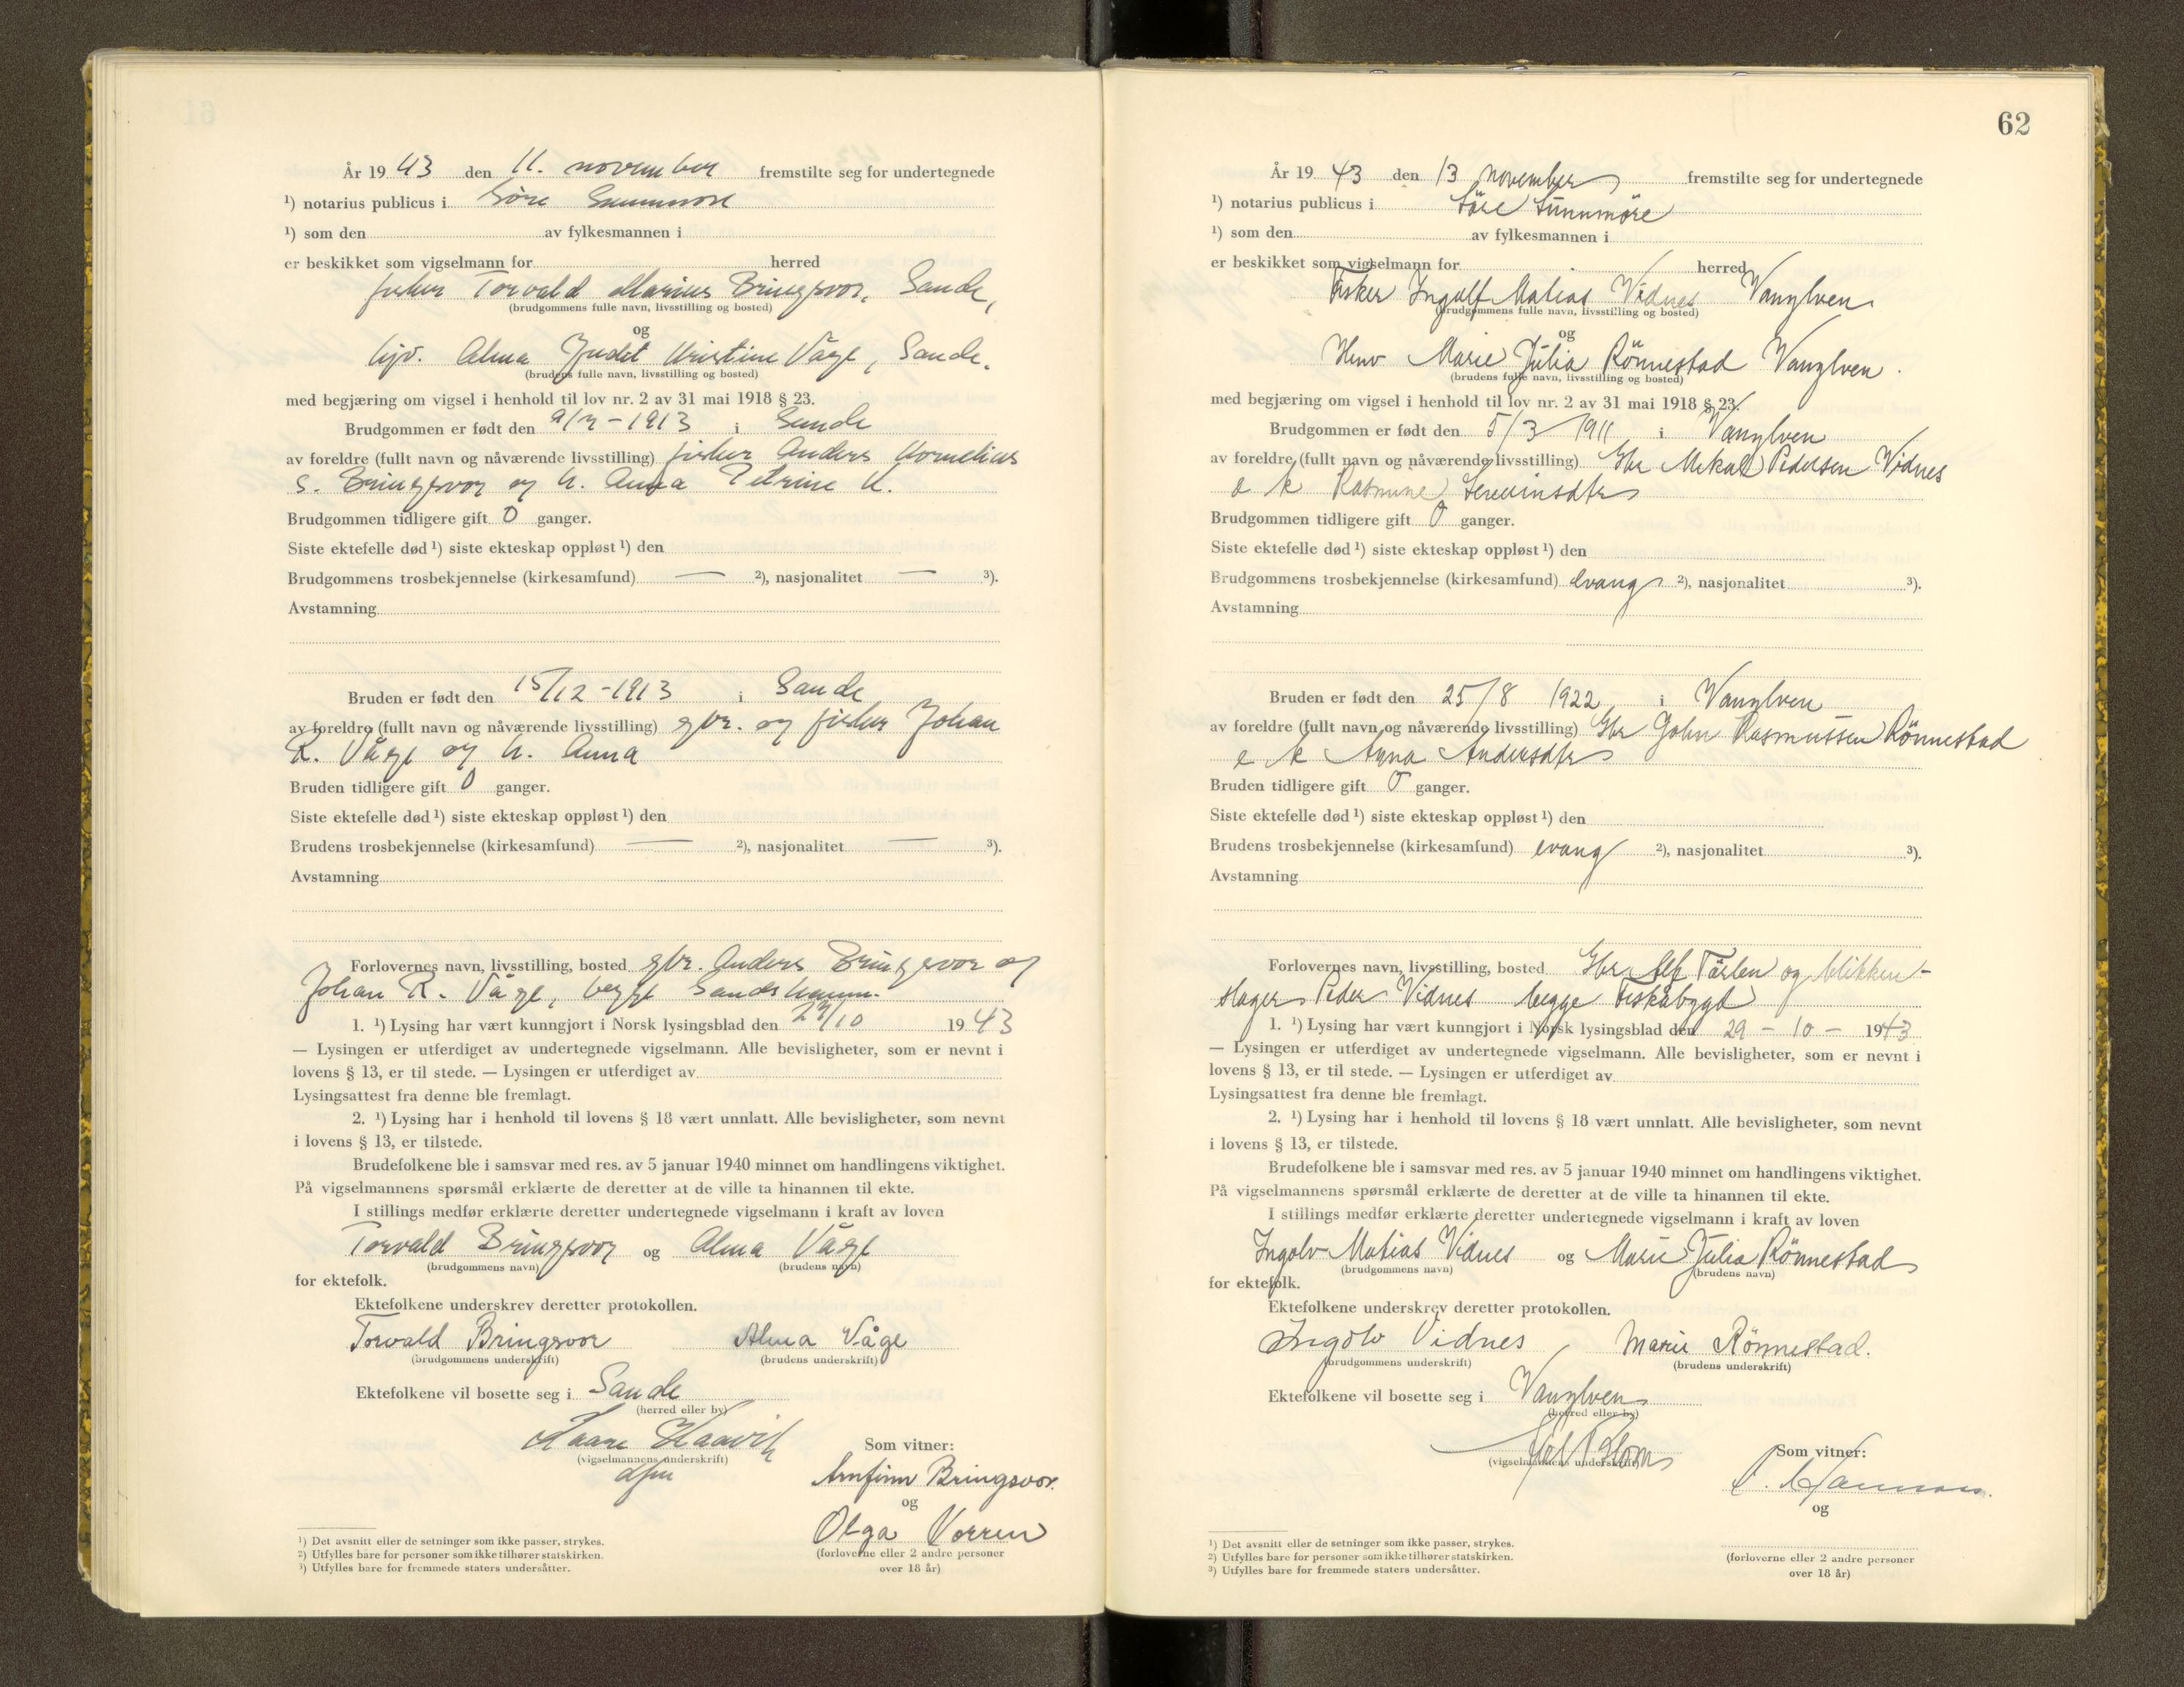 År 19 43 den 11. november fremstilte seg for undertegnede
¹) notarius publicus i Söre Sunnmöre
¹) som den av fylkesmannen i
er beskikket som vigselmann for herred
fisker Torvald Marius Bringsvor, Sande,
(brudgommens fulle navn, livsstilling og bosted)
og
hjv. Alma Judit Kristine Våge, Sande.
(brudens fulle navn, livsstilling og bosted)
med begjæring om vigsel i henhold til lov nr. 2 av 31 mai 1918 § 23.
Brudgommen er født den -1913 i Sande
av foreldre (fullt navn og nåværende livsstilling) fisker Anders Kornelius
S. Bringsvor og h. Anna Petrine K.
Brudgommen tidligere gift 0 ganger.
Siste ektefelle død ¹) siste ekteskap oppløst ¹) den
Brudgommens trosbekjennelse (kirkesamfund) — ²), nasjonalitet — ³).
Avstamning
Bruden er født den 15/12 -1913 i Sande
av foreldre (fullt navn og nåværende livsstilling) gbr. og fisker Johan
R. Våge og h. Anna
Bruden tidligere gift 0 ganger.
Siste ektefelle død ¹) siste ekteskap oppløst ¹) den
Brudens trosbekjennelse (kirkesamfund) — ²), nasjonalitet — ³).
Avstamning
Forlovernes navn, livsstilling, bosted gbr. Anders Bringsvor og
Johan R. Våge, begge Sandshamn.
1. ¹) Lysing har vært kunngjort i Norsk lysingsblad den 29/10 19 43
— Lysingen er utferdiget av undertegnede vigselmann. Alle bevisligheter, som er nevnt i
lovens § 13, er til stede. — Lysingen er utferdiget av
Lysingsattest fra denne ble fremlagt.
2. ¹) Lysing har i henhold til lovens § 18 vært unnlatt. Alle bevisligheter, som nevnt
i lovens § 13, er tilstede.
Brudefolkene ble i samsvar med res. av 5 januar 1940 minnet om handlingens viktighet.
På vigselmannens spørsmål erklærte de deretter at de ville ta hinannen til ekte.
I stillings medfør erklærte deretter undertegnede vigselmann i kraft av loven
Torvald Bringsvor og Alma Våge
(brudgommens navn) (brudens navn)
for ektefolk.
Ektefolkene underskrev deretter protokollen.
Torvald Bringsvor Alma Våge
(brudgommens underskrift) (brudens underskrift)
Ektefolkene vil bosette seg i Sande
(herred eller by)
Kaare Haavik
(vigselmannens underskrift)
dfm
Som vitner:
Arnfinn Bringsvor
og
Olga Vorren
(forloverne eller 2 andre personer
over 18 år)
¹) Det avsnitt eller de setninger som ikke passer, strykes.
²) Utfylles bare for personer som ikke tilhører statskirken.
³) Utfylles bare for fremmede staters undersåtter.
62
År 19 43 den 13 november fremstilte seg for undertegnede
¹) notarius publicus i Söre Sunnmöre
¹) som den av fylkesmannen i
er beskikket som vigselmann for herred
Fisker Ingolf Matias Vidnes Vanylven
(brudgommens fulle navn, livsstilling og bosted)
og
Hmv Marie Julia Rönnestad Vanylven.
(brudens fulle navn, livsstilling og bosted)
med begjæring om vigsel i henhold til lov nr. 2 av 31 mai 1918 § 23.
Brudgommen er født den 5/3 1911 i Vanylven
av foreldre (fullt navn og nåværende livsstilling) Gbr Mekal Pedersen Vidnes
o k Rasmine Severinsdtr
Brudgommen tidligere gift 0 ganger.
Siste ektefelle død ¹) siste ekteskap oppløst ¹) den
Brudgommens trosbekjennelse (kirkesamfund) evang ²), nasjonalitet ³).
Avstamning
Bruden er født den 25/8 1922 i Vanylven
av foreldre (fullt navn og nåværende livsstilling) Gbr John Rasmussen Rönnestad
o k Anna Andersdtr
Bruden tidligere gift 0 ganger.
Siste ektefelle død ¹) siste ekteskap oppløst ¹) den
Brudens trosbekjennelse (kirkesamfund) evang ²), nasjonalitet ³).
Avstamning
Forlovernes navn, livsstilling, bosted Gbr Alf og blikken-
slager Peder Vidnes begge Fiskåbygd
1. ¹) Lysing har vært kunngjort i Norsk lysingsblad den 29 - 10 - 1943
— Lysingen er utferdiget av undertegnede vigselmann. Alle bevisligheter, som er nevnt i
lovens § 13, er til stede. — Lysingen er utferdiget av
Lysingsattest fra denne ble fremlagt.
2. ¹) Lysing har i henhold til lovens § 18 vært unnlatt. Alle bevisligheter, som nevnt
i lovens § 13, er tilstede.
Brudefolkene ble i samsvar med res. av 5 januar 1940 minnet om handlingens viktighet.
På vigselmannens spørsmål erklærte de deretter at de ville ta hinannen til ekte.
I stillings medfør erklærte deretter undertegnede vigselmann i kraft av loven
Ingolv Matias Vidnes og Marie Julia Rönnestad
(brudgommens navn) (brudens navn)
for ektefolk.
Ektefolkene underskrev deretter protokollen.
Ingolv Vidnes Marie Rönnestad.
(brudgommens underskrift) (brudens underskrift)
Ektefolkene vil bosette seg i Vanylven
(herred eller by)
(vigselmannens underskrift)
Som vitner:
og
(forloverne eller 2 andre personer
over 18 år)
¹) Det avsnitt eller de setninger som ikke passer, strykes.
²) Utfylles bare for personer som ikke tilhører statskirken.
³) Utfylles bare for fremmede staters undersåtter.